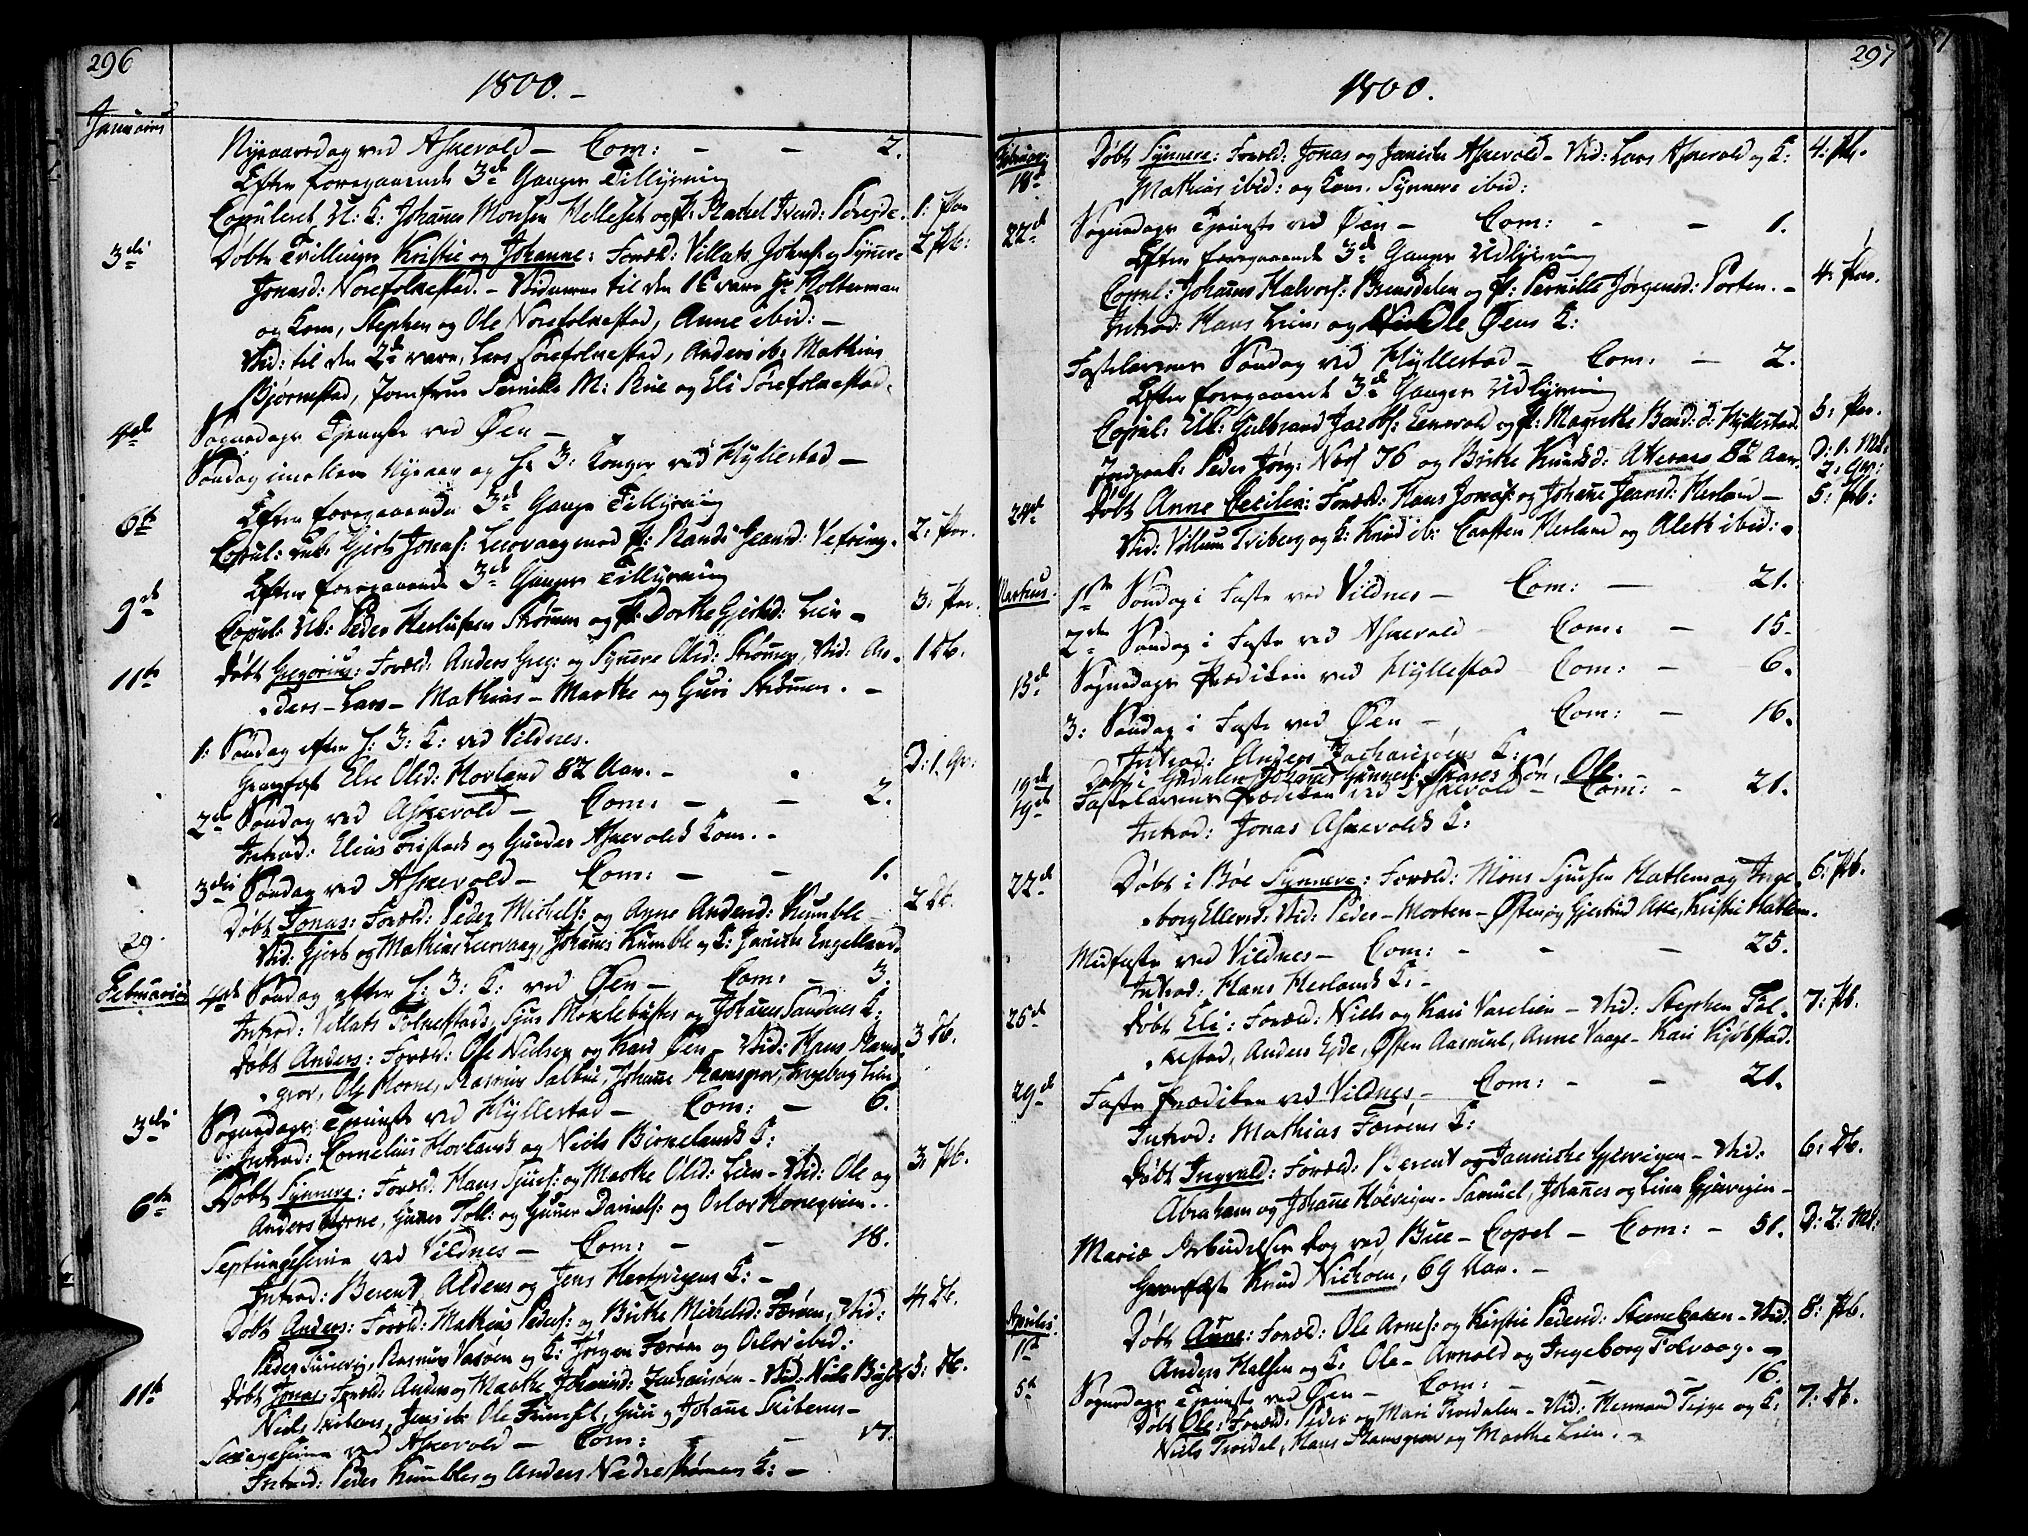 296
1800.
Januarius
Nyeaarsdag ved Askevold - Com: - - 2.
Efter foregaaende 3de Ganger Tillysning
Copuleret U: K: Johannes Monsen Helleset og P: Rachel Iversd: 1: Par
3die Døbt Tvillinger Kristie og Johanne: Foræld: Villats Johns: og Synneve 2 Pb:
Jonasd: Norefolkestad. - Vidnerne til den 1te vare Hr Holterman
og Kone, Stephen og Ole Norefolkestad, Anne ibid: -
Vid: til den 2de vare, Lars Sørefolkestad, Anders ib: Mathias
Bjørnestad, Jomfrue Pernille M: Bue og Eli Sørefolkestad.
4de Søgnedags Tjeneste ved Øen -
Søndag imellem Nyeaar og H: 3: Konger ved Hyllestad -
Efter foregaaende 3de Gange Tillysning
6te Copul: Gjert Jonas: Leervaag med P: Randi Jeansd: Vefring. 2: Par.
Efter foregaaende 3de Ganger Tillysning
9de Copul: Ub: Peder Herlufsen Strømen og P: Dorthe Gjertsd: Lien - 3: Par.
11te Døbt Gregorius: Foræld: Anders Greg: og Synneve Olsd: Strømen, Vid: An- 1 Db.
ders - Lars - Mathias - Marthe og Guri Strømen. -
1: Søndag efter H: 3: K: ved Vildnes.
Gravfæst Else Olsd: Hovland 82 Aar. - D: 1. Qv:
2den Søndag ved Askevold - Com: - - 2.
Introd: Elias Tvistads og Gunder Askevolds Kone. -
3die Søndag ved Askevold - Com: - - 1.
Døbt Jonas: Foræld: Peder Michels: og Anne Andersd: Kumble 2 Db.
29. Vid: Gjert og Mathias Leervaag, Johannes Kumble og K: Janiche Engelland.
Februarius 4de Søndag efter H: 3: K: ved Øen - Com: - 3.
Introd: Villats Folkestads, Sjur Møklebusts og Johannes Sandnes K:
Døbt Anders: Foræld: Ole Nielsen og Kari Øen - Vid: Hans Rams- 3 Db.
grov, Ole Horne, Rasmus Salbue, Johanne Ramsgrov, Ingeborg Lien
3die Søgnedags Tjeneste ved Hyllestad - Com: - 6.
Introd: Cornelius Hovlands og Niels Birkelands K:
6te Døbt Synneve: Foræld: Hans Sjurs: og Marthe Olsd: Lien - Vid: Ole og 3: Pb.
Anders Horne, Gunner Toll: og Gunner Daniels: og Oslov Hornegrien. -
Septuagesima ved Vildnes - Com: - - 18.
Introd: Berent Aldens og Jens Hertvigens K: -
Døbt Anders: Foræld: Mathias Peders: og Brithe Michelsd: Færøen, Vid: 4: Db.
Peder Rasmus Vasøen og K: Jørgen Færøen og Oslov ibid:
11te Døbt Jonas: Foræld: Anders og Marthe Johannisd: Zachariasøen - Vid: Niels 5: Db.
Niels Jens ib: Ole Guri og Johanne
Sexagesima ved Askevold - Com: - - 17.
Introd: Peder Kumbles og Anders Nedrestrømens K: -
297
1800.
Februar: 18de Døbt Synneve: Foræld: Jonas og Janiche Askevold - Vid: Lars Askevold og K: 4: Pb.
Mathias ibid: og Kone. Synneve ibid:
22de Søgnedags Tjeneste ved Øen - Com: - - 1.
Efter foregaaende 3de Ganger Udlysning
Copul: Johannes Halvors: og P: Pernille Jørgensd: Porten. - 4: Par.
Introd: Hans Leins og Ole Øens K:
Fastelavens Søndag ved Hyllestad - Com: - 2.
Efter foregaaende 3de Ganger Udlysning
Copul: Ub: Gulbrand Jacobs: og P: Magrethe Hyllestad. 5: Par.
Jordpaak: Peder Jørg: 76 og Brithe Knudsd: 82 Aar. D: 1. Mk: 2: Qv:
24de Døbt Anne Cecilie: Foræld: Hans Jonas: og Johanne Jeansd: Herland - 5: Pb:
Vid: Villum Tviberg og K: Knud ib: Carsten Herland og Aleth ibid: -
Martius. 1ste Søndag i Faste ved Vildnes - Com: - 21.
2den Søndag i Faste ved Askevold - Com: - 15.
15de Søgnedags Prædiken ved Hyllestad - Com: - 6.
3: Søndag i Faste ved Øen - Com: - 16.
Introd: Anders Zachariasøens K:
19de Døbt i Johannes Gunners: Søn, Ole. -
19de Fastelavens Prædiken ved Askevold - Com: - 21.
Introd: Jonas Askevolds K:
22de Døbt i Bøe Synneve: Foræld: Mons Sjursen Hatlem og Inge- 6: Pb.
borg Ellensd: Vid: Peder - Morten - Østen og Gjertrud Kristie Hatlem.
Midfaste ved Vildnes - Com: - - - 25.
Introd: Hans Herlands K: -
26de Døbt Eli: Foræld: Niels og Kari Varelien - Vid: Stephen Fol- 7: Pb.
kestad, Anders Eyde, Østen Aasmul, Anne Vaage - Kari Kjøbstad.
29de Faste Prædiken ved Vildnes - Com: - - 21.
Introd: Mathias Færøens K:
Døbt Ingvald: Foræld: Berent og Janniche Gjervigen - Vid: 6: Db.
Abraham og Johanne Høevigen - Samuel, Johannes og Lene Gjervigen -
Mariæ Bebudelses Dag ved Bue - Capel - Com: - 51. D: 2: Mk:
Gravfæst Knud Nichøen, 69 Aar. -
Aprilis. 1ste Døbt Anne: Foræld: Ole Arnes: og Kirstie Pedersd: Steenebakken - Vid. 8: Pb.
Anders Halsen og K: Ole - Arnold og Ingeborg Tolvaag. -
5te Søgnedags Tjeneste ved Øen - Com: - - - 16.
Døbt Ole: Foræld: Peder og Mari Trædalen - Vid: Herman og K: 7: Db.
Niels Trædal, Hans Ramsgrov og Marthe Lien. -